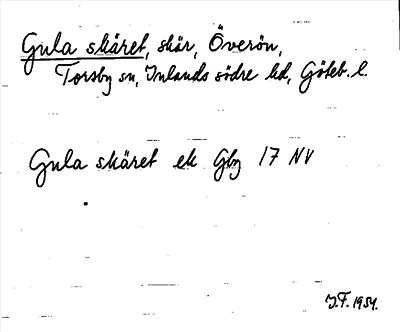 Gula skäret, skär, Överön,
Torsby sn, Inlands södre hd, Göteb. l.
Gula skäret ek Gbg 17 NV
J.F. 1954.